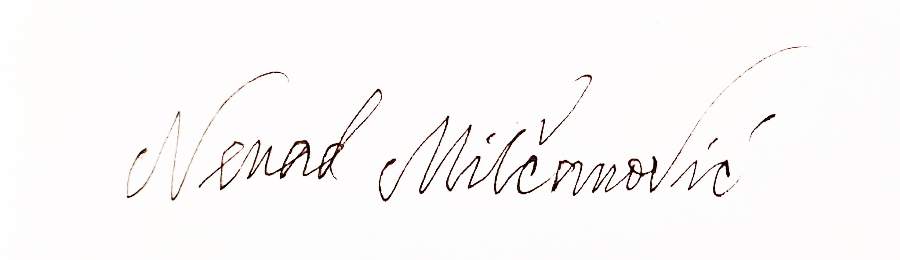 Nenad Milčanović